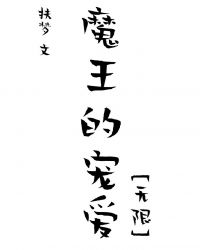 魔王的宠爱
[无限]
扶梦 文